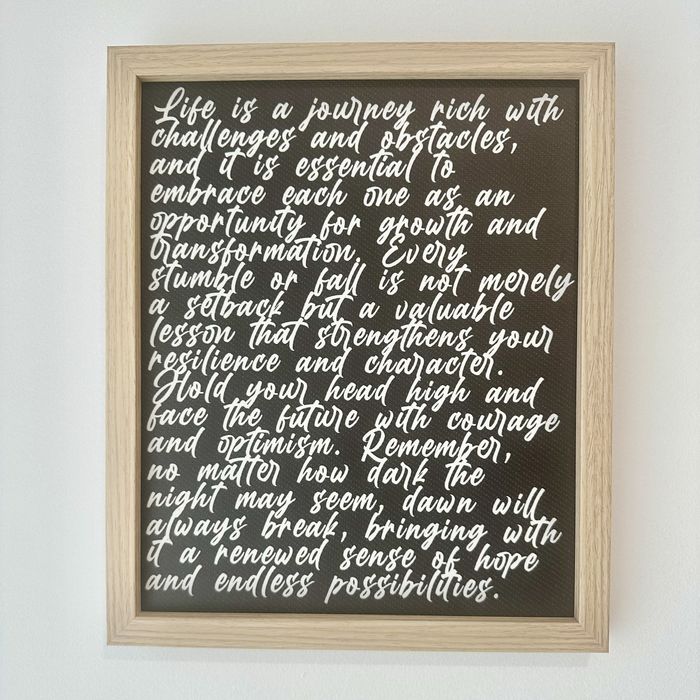 Life is a journey rich with
challenges and obstacles,
and it is essential to
embrace each one as an
opportunity for growth and
transformation. Every
stumble or fall is not merely
a setback but a valuable
lesson that strengthens your
resilience and character.
Hold your head high and
face the future with courage
and optimism. Remember,
no matter how dark the
night may seem, dawn will
always break, bringing with
it a renewed sense of hope
and endless possibilities.